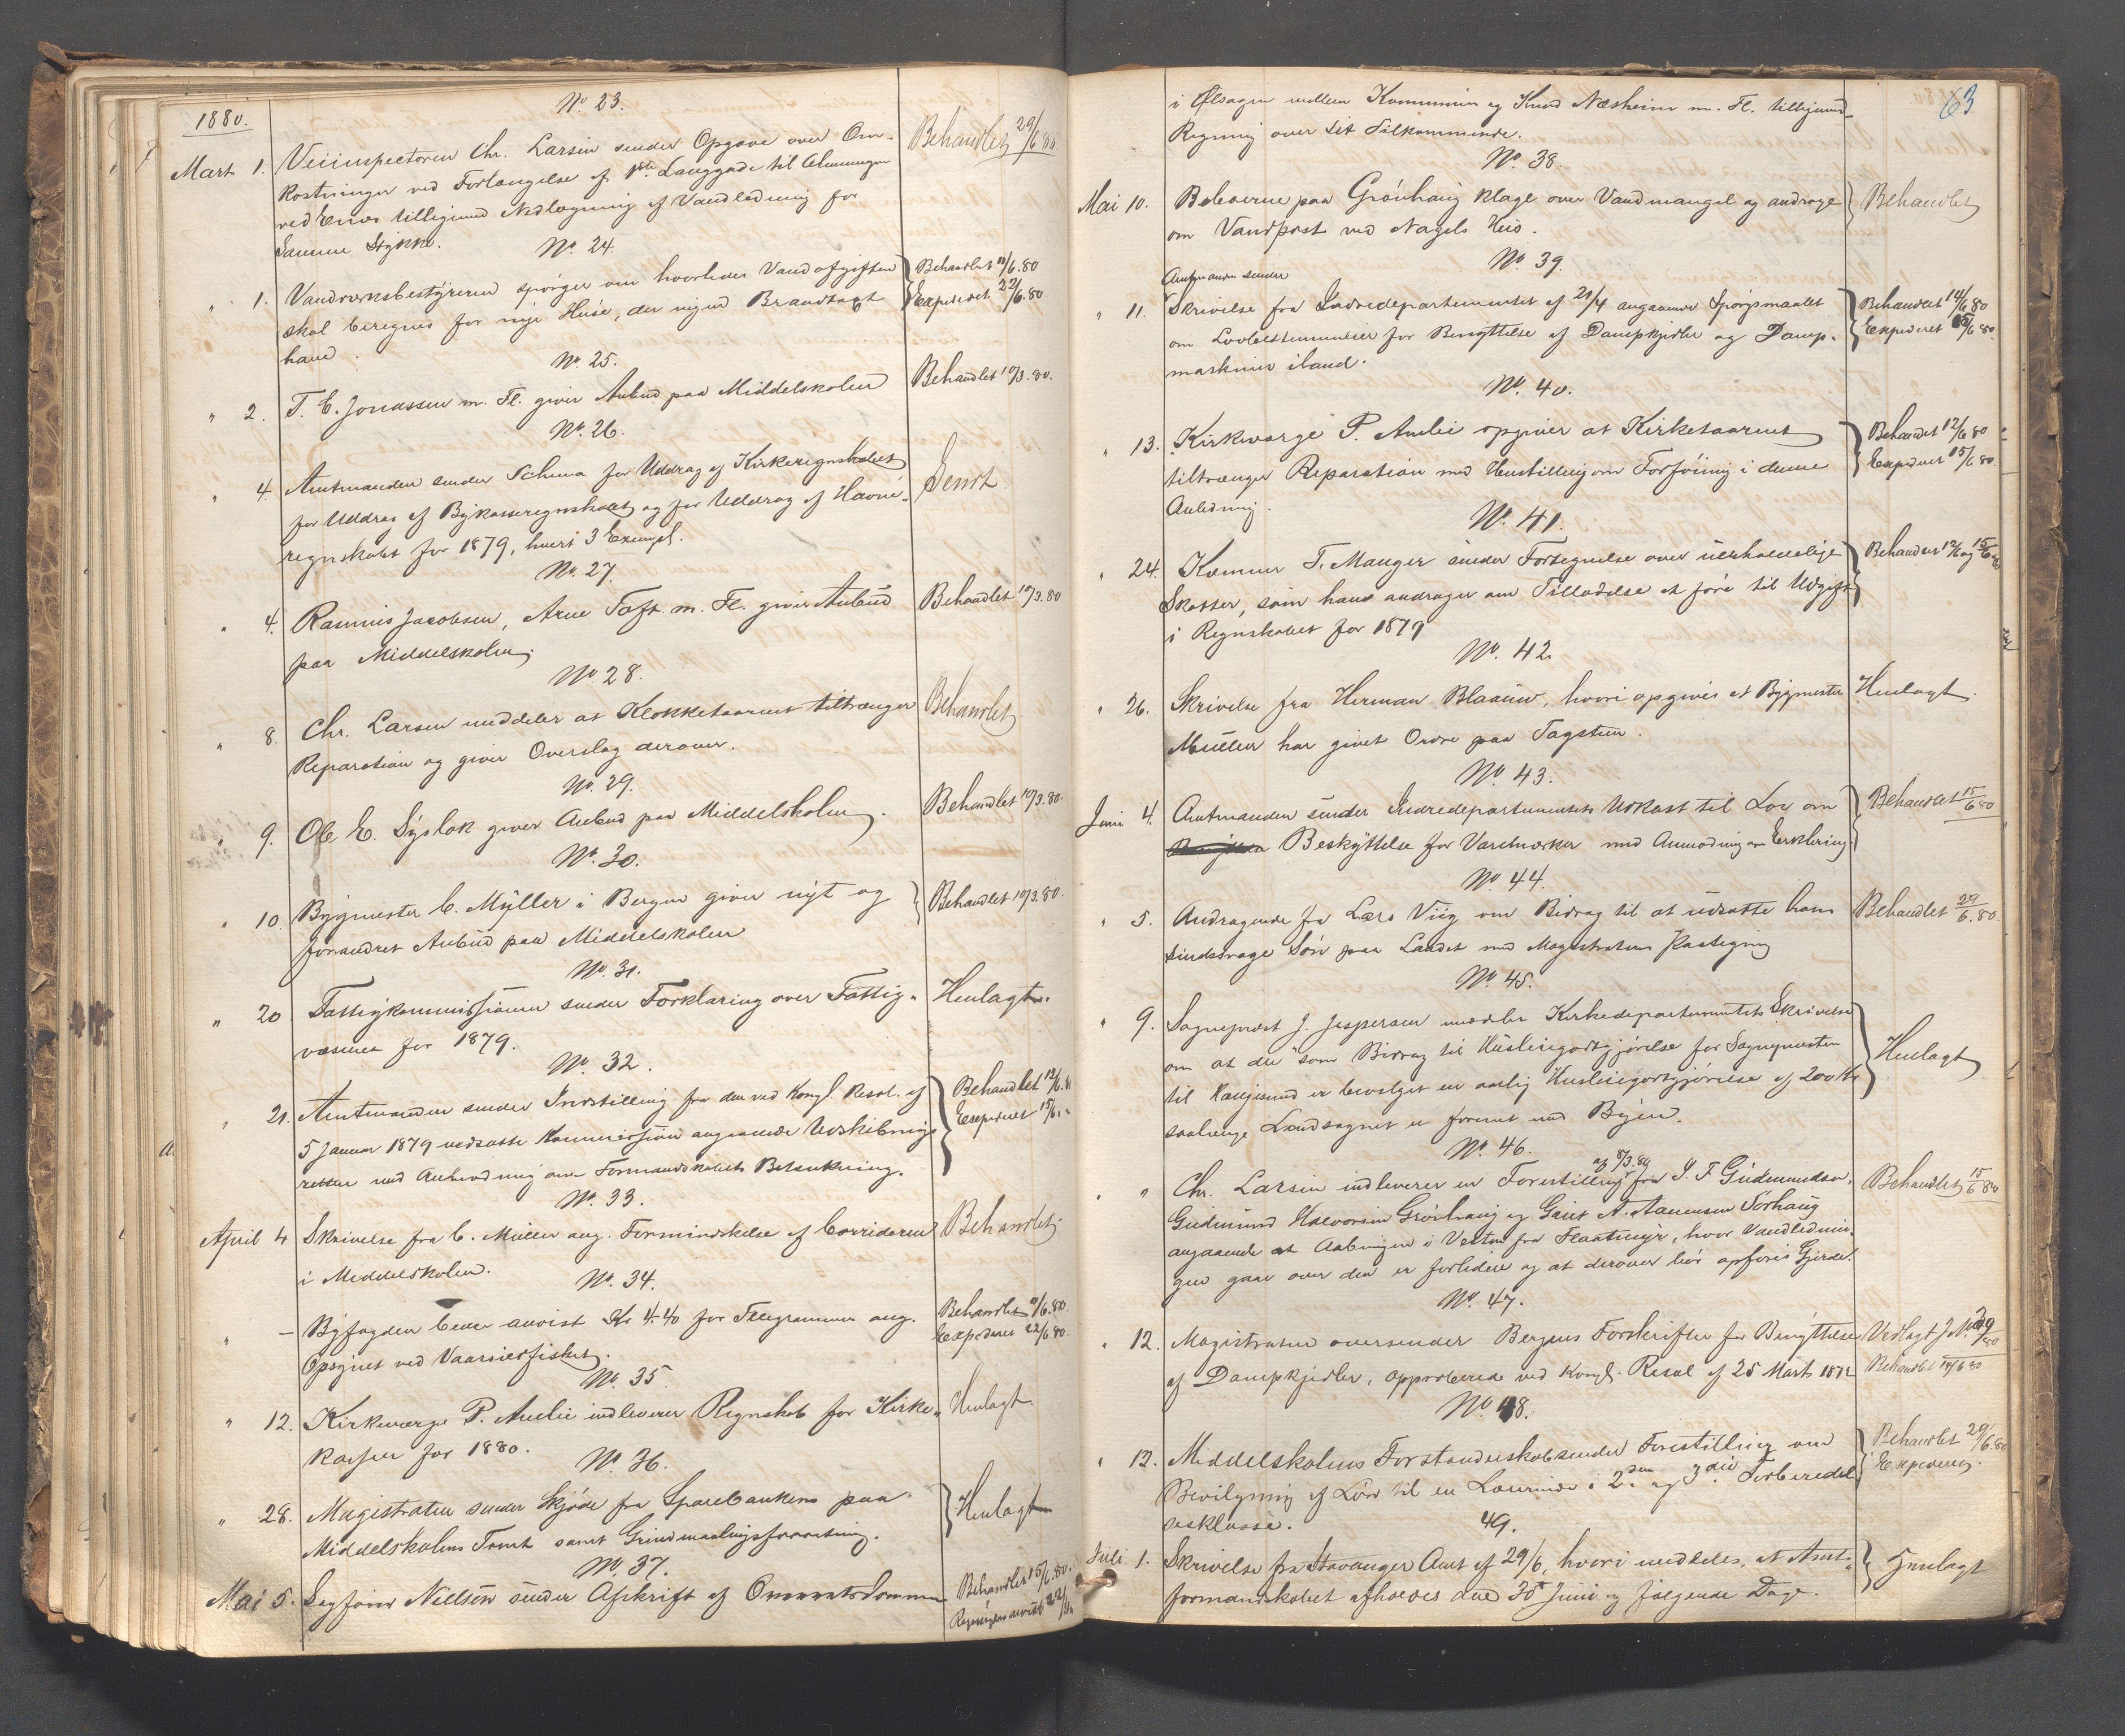 1880.
No. 23.
Mart 1. Veiinspectoren Chr. Larsen sender Opgave over Om-
kostninger ved Forlængelse af 1ste Langgade til Almuungen
ved Enæs tilligemed Nedlægning af Vandledning for
Samme Stykke.
Behandlet 29/6 80
No. 24.
" 1. Vandverksbestyreren spörger om hvorledes Vandafgiften
skal beregnes for nye Huse, der nyeud Brandtaxt
havd.
Behandlet 12/6.80
Expederet 22/6.80
No. 25.
" 2. T. E. Jonassen m. Fl. giver Anbud paa Middelskolen
Behandlet 10/3.80.
No. 26.
" 4. Amtmanden sender Schema for Uddrag af Kirkeregnskabet
for Uddrag af Bykasseregnskabet og for Uddrag af Havne-
regnskabet for 1879, hvert 3 Exempl.
Sendt.
No. 27.
" 4. Rasmus Jacobsen, Arne Toft m. Fl. giver Anbud
paa Middelskolen.
Behandlet 10/3.80
No 28.
" 8. Chr. Larsen meddeler at Klokketaarnet tiltrænger
Reparation og giver Overslag derover.
Behandlet
No. 29.
" 9. Ole E. Syslak giver Anbud paa Middelskolen.
Behandlet 10/3.80.
No. 30.
" 10. Bygmester C. Müller i Bergen giver nyt og
forandret Anbud paa Middelskolen
Behandlet 10/3.80.
No. 31.
" 20. Fattigkommissionen sender Forklaring over Fattig-
væsenet for 1879.
Henlagt.
No. 32.
" 21. Amtmanden sender Indstilling fra den ved Kongl. Resol. af
5 Januar 1879 nedsatte Kommission angaaende Udskibnings
retten med Anmodning om Formandskabets Betænkning.
Behandlet 12/6.80
Expederet 15/6. "
No. 33.
April 4 Skrivelse fra C. Müller ang. Formindskelse af Corridoren
i Middelskolen.
Behandlet
No. 34.
" – Byfogden beder anvist Kr 4.40 for Telegrammer ang.
Opsynet ved Vaarsildfisket.
Behandlet 12/6.80.
Expederet 22/6 80.
No. 35.
" 12. Kirkeværge P. Amlie indleverer Regnskab for Kirke-
kassen for 1880.
Henlagt.
No. 36.
" 28. Magistraten sender Skjöde fra Sparebanken paa
Middelskolens Tomt samt Grundmaalingsforretning.
Henlagt
No. 37.
Mai 5. Sagförer Nielsen sender Afskrift af Overretsdommen
Behandlet 15/6.80.
Regningen anvist 22/6
63
i Ölsagen mellem Kommunen og Knud Næsheim m. Fl. tilligemed
Regning over sit Tilkommende.
No. 38
Mai 10. Beboerne paa Grönhaug klage over Vandmangel og andrage
om Vandpost ved Nagels Hus.
Behandlet
No. 39.
Amtmanden sender
" 11. Skrivelse fra Indredepartementet af 21/4 angaaende Spörgsmaalet
om Lovbestemmelser for Benyttelse af Dampkjedler og Damp-
maskiner iland.
Behandlet 14/6 80
Expederet 15/6 80.
No. 40.
" 13. Kirkeværge P. Amlie opgiver at Kirketaarnet
tiltrænger Reparation med Henstilling om Forföining i denne
Anledning.
Behandlet 12/6 80
Expederet 15/6 80.
No. 41.
" 24. Kæmner T. Manger sender Fortegnelse over uerholdelige
Skatter, som hans andrager om Tilladelse at före til Udgift
i Regnskabet for 1879
Behandlet 12/6 og 15/6 80
No. 42.
" 26. Skrivelse fra Herman Blaauw, hvori opgives at Bygmester
Müller har givet Ordre paa Tagsteen.
Henlagt.
No. 43.
Juni 4. Amtmanden sender Indredepartementets Udkast til Lov om
Beskyttelse for Varemærker med Anmodning om Erklæring.
Behandlet 15/6 80
No. 44.
" 5. Andragende fra Lars Viig om Bidrag til at udsætte hans
sindssvage Sön paa Landet med Magistratens Paategning
Behandlet 29/6.80.
No. 45.
" 9. Sogneprest J. Jespersen meddeler Kirkedepartementets Skrivelse
om at der "som Bidrag til Huslieigodtgjörelse for Sognepresten
til Haugesund er bevilget en aarlig Husleiegodtgjörelse af 200 Kr.
saalænge Landsognet er forenet med Byen.
Henlagt
No. 46.
" " Chr. Larsen indleverer en Forestilling af 8/3.80 fra S. T. Gudmundsen,
Gudmund Halvorsen Grönhaug og Gaut A. Aanensen Sörhaug
angaaende at Aabningen i Vesten fra Flaatmyr, hvor Vandlednin-
gen gaar over den er forliden og at derover bör opföres Gjerde.
Behandlet 15/6 80
No. 47.
" 12. Magistraten oversender Bergens Forskrifter for Benyttelse
af Dampkjedler, approberede ved Kongl. Resol af 25 Marts 1872
Vedlagt J. No. 39/80
Behandlet 14/6 80
No. 48.
" 12. Middelskolens Forstanderskab sender Forestilling om
Bevilgning af Lön til en Lærerinde i 2den og 3die Forberedel
sesklasse.
Behandlet 29/6.80
Expederet.
49.
Juli 1. Skrivelse fra Stavanger Amt af 29/6, hvori meddeles, at Amts-
formandskabet afholdes den 30 Juni og fölgende Dage.
Henlagt